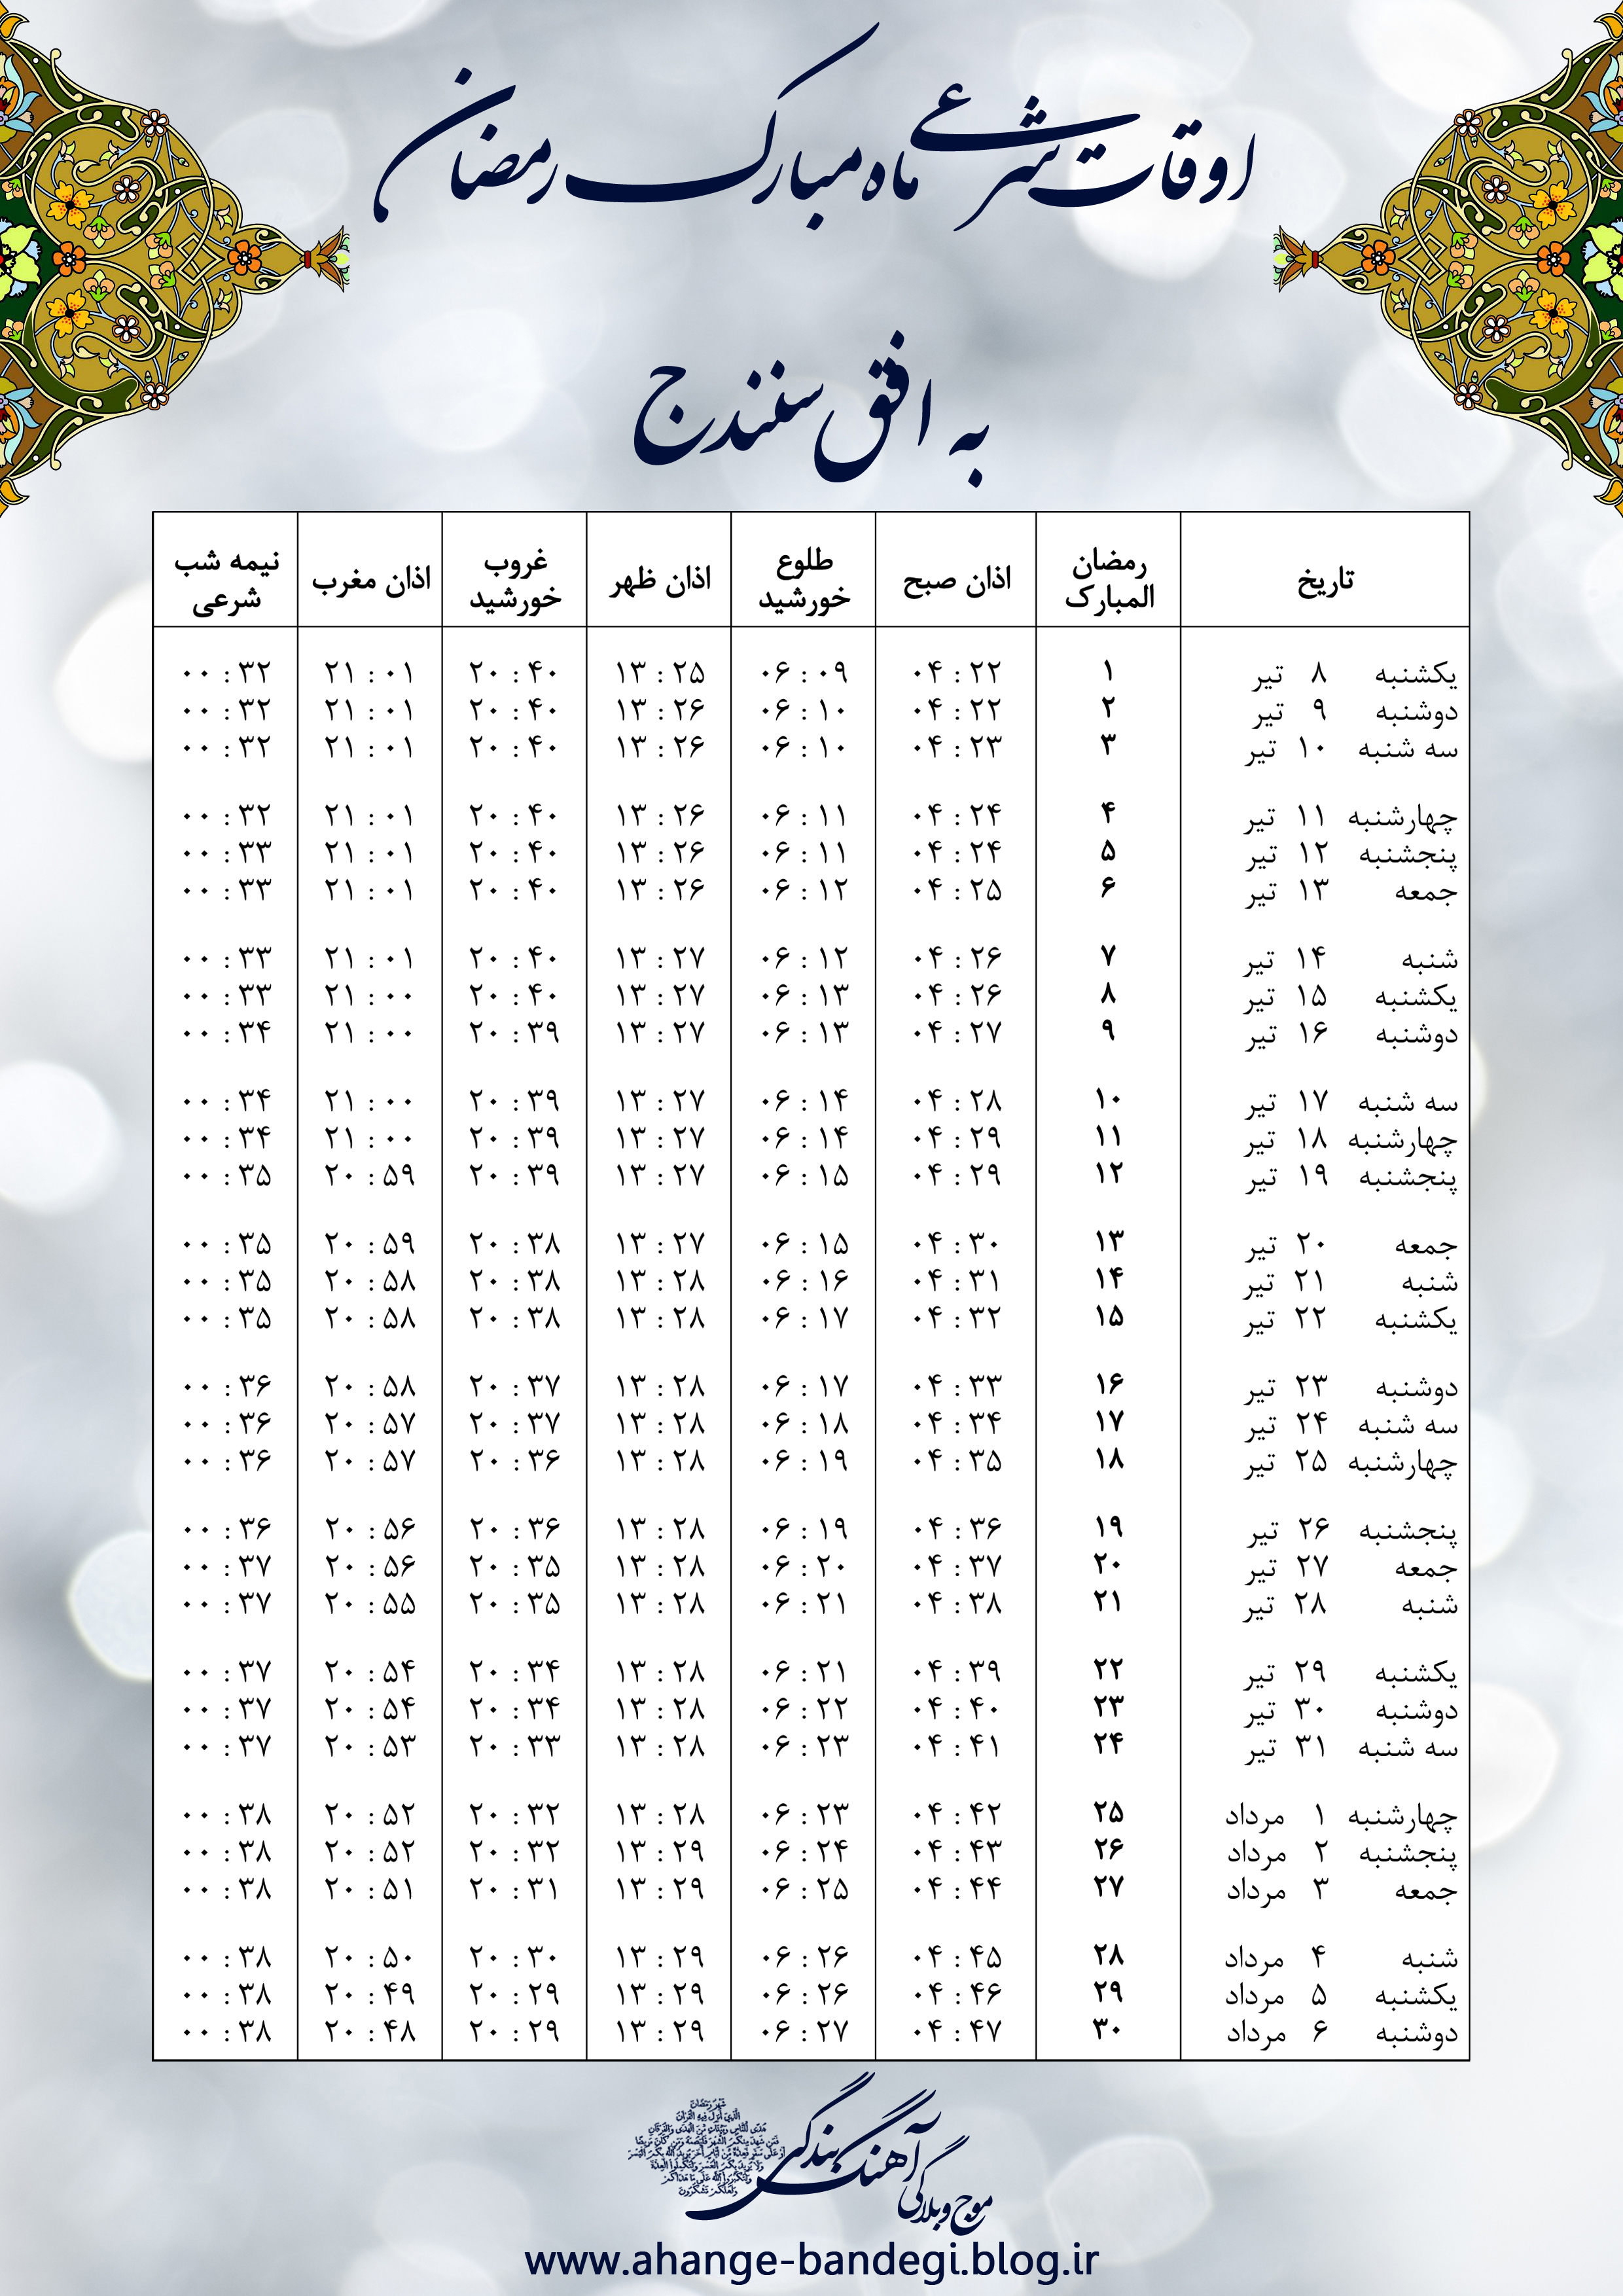 اوقات شرعی ماه مبارک رمضان
به افق سنندج
تاریخ رمضان المبارک اذان صبح طلوع خورشید اذان ظهر غروب خورشید اذان مغرب نیمه شب شرعی
یکشنبه ۸ تیر ۱ ۰۴:۲۲ ۰۶:۰۹ ۱۳:۲۵ ۲۰:۴۰ ۲۱:۰۱ ۰۰:۳۲
دوشنبه ۹ تیر ۲ ۰۴:۲۲ ۰۶:۱۰ ۱۳:۲۶ ۲۰:۴۰ ۲۱:۰۱ ۰۰:۳۲
سه شنبه ۱۰ تیر ۳ ۰۴:۲۳ ۰۶:۱۰ ۱۳:۲۶ ۲۰:۴۰ ۲۱:۰۱ ۰۰:۳۲
چهارشنبه ۱۱ تیر ۴ ۰۴:۲۴ ۰۶:۱۱ ۱۳:۲۶ ۲۰:۴۰ ۲۱:۰۱ ۰۰:۳۲
پنجشنبه ۱۲ تیر ۵ ۰۴:۲۴ ۰۶:۱۱ ۱۳:۲۶ ۲۰:۴۰ ۲۱:۰۱ ۰۰:۳۳
جمعه ۱۳ تیر ۶ ۰۴:۲۵ ۰۶:۱۲ ۱۳:۲۶ ۲۰:۴۰ ۲۱:۰۱ ۰۰:۳۳
شنبه ۱۴ تیر ۷ ۰۴:۲۶ ۰۶:۱۲ ۱۳:۲۷ ۲۰:۴۰ ۲۱:۰۱ ۰۰:۳۳
یکشنبه ۱۵ تیر ۸ ۰۴:۲۶ ۰۶:۱۳ ۱۳:۲۷ ۲۰:۴۰ ۲۱:۰۰ ۰۰:۳۳
دوشنبه ۱۶ تیر ۹ ۰۴:۲۷ ۰۶:۱۳ ۱۳:۲۷ ۲۰:۳۹ ۲۱:۰۰ ۰۰:۳۴
سه شنبه ۱۷ تیر ۱۰ ۰۴:۲۸ ۰۶:۱۴ ۱۳:۲۷ ۲۰:۳۹ ۲۱:۰۰ ۰۰:۳۴
چهارشنبه ۱۸ تیر ۱۱ ۰۴:۲۹ ۰۶:۱۴ ۱۳:۲۷ ۲۰:۳۹ ۲۱:۰۰ ۰۰:۳۴
پنجشنبه ۱۹ تیر ۱۲ ۰۴:۲۹ ۰۶:۱۵ ۱۳:۲۷ ۲۰:۳۹ ۲۰:۵۹ ۰۰:۳۵
جمعه ۲۰ تیر ۱۳ ۰۴:۳۰ ۰۶:۱۵ ۱۳:۲۷ ۲۰:۳۸ ۲۰:۵۹ ۰۰:۳۵
شنبه ۲۱ تیر ۱۴ ۰۴:۳۱ ۰۶:۱۶ ۱۳:۲۸ ۲۰:۳۸ ۲۰:۵۸ ۰۰:۳۵
یکشنبه ۲۲ تیر ۱۵ ۰۴:۳۲ ۰۶:۱۷ ۱۳:۲۸ ۲۰:۳۸ ۲۰:۵۸ ۰۰:۳۵
دوشنبه ۲۳ تیر ۱۶ ۰۴:۳۳ ۰۶:۱۷ ۱۳:۲۸ ۲۰:۳۷ ۲۰:۵۸ ۰۰:۳۶
سه شنبه ۲۴ تیر ۱۷ ۰۴:۳۴ ۰۶:۱۸ ۱۳:۲۸ ۲۰:۳۷ ۲۰:۵۷ ۰۰:۳۶
چهارشنبه ۲۵ تیر ۱۸ ۰۴:۳۵ ۰۶:۱۹ ۱۳:۲۸ ۲۰:۳۶ ۲۰:۵۷ ۰۰:۳۶
پنجشنبه ۲۶ تیر ۱۹ ۰۴:۳۶ ۰۶:۱۹ ۱۳:۲۸ ۲۰:۳۶ ۲۰:۵۶ ۰۰:۳۶
جمعه ۲۷ تیر ۲۰ ۰۴:۳۷ ۰۶:۲۰ ۱۳:۲۸ ۲۰:۳۵ ۲۰:۵۶ ۰۰:۳۷
شنبه ۲۸ تیر ۲۱ ۰۴:۳۸ ۰۶:۲۱ ۱۳:۲۸ ۲۰:۳۵ ۲۰:۵۵ ۰۰:۳۷
یکشنبه ۲۹ تیر ۲۲ ۰۴:۳۹ ۰۶:۲۱ ۱۳:۲۸ ۲۰:۳۴ ۲۰:۵۴ ۰۰:۳۷
دوشنبه ۳۰ تیر ۲۳ ۰۴:۴۰ ۰۶:۲۲ ۱۳:۲۸ ۲۰:۳۴ ۲۰:۵۴ ۰۰:۳۷
سه شنبه ۳۱ تیر ۲۴ ۰۴:۴۱ ۰۶:۲۳ ۱۳:۲۸ ۲۰:۳۳ ۲۰:۵۳ ۰۰:۳۷
چهارشنبه ۱ مرداد ۲۵ ۰۴:۴۲ ۰۶:۲۳ ۱۳:۲۸ ۲۰:۳۲ ۲۰:۵۲ ۰۰:۳۸
پنجشنبه ۲ مرداد ۲۶ ۰۴:۴۳ ۰۶:۲۴ ۱۳:۲۹ ۲۰:۳۲ ۲۰:۵۲ ۰۰:۳۸
جمعه ۳ مرداد ۲۷ ۰۴:۴۴ ۰۶:۲۵ ۱۳:۲۹ ۲۰:۳۱ ۲۰:۵۱ ۰۰:۳۸
شنبه ۴ مرداد ۲۸ ۰۴:۴۵ ۰۶:۲۶ ۱۳:۲۹ ۲۰:۳۰ ۲۰:۵۰ ۰۰:۳۸
یکشنبه ۵ مرداد ۲۹ ۰۴:۴۶ ۰۶:۲۶ ۱۳:۲۹ ۲۰:۲۹ ۲۰:۴۹ ۰۰:۳۸
دوشنبه ۶ مرداد ۳۰ ۰۴:۴۷ ۰۶:۲۷ ۱۳:۲۹ ۲۰:۲۹ ۲۰:۴۸ ۰۰:۳۸
موج وبلاگی آهنگ بندگی
www.ahange-bandegi.blog.ir